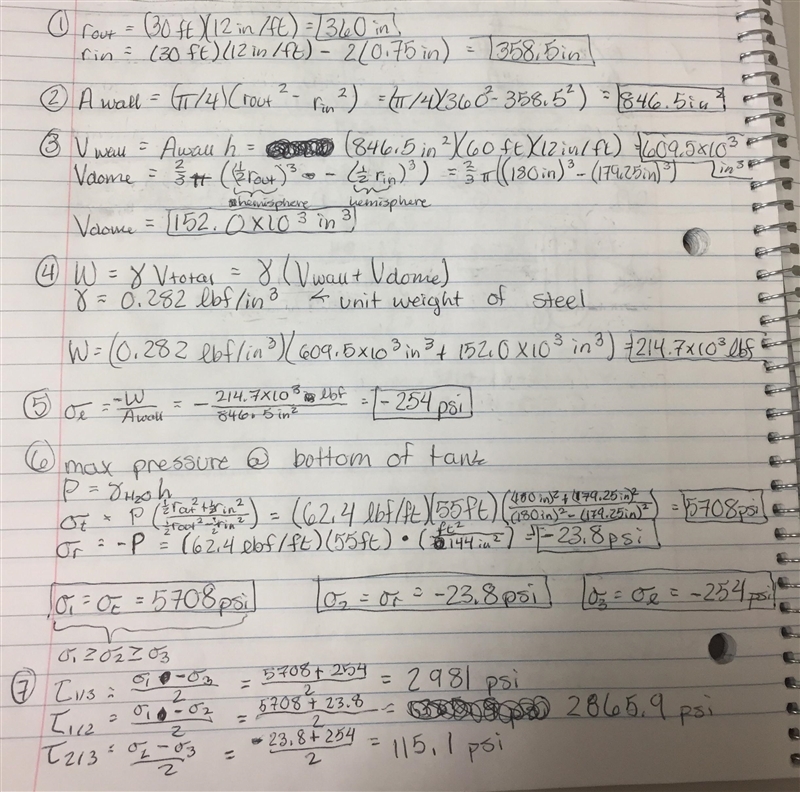 ① rout = (30 ft)(12 in/ft) = 360 in
rin = (30 ft)(12 in/ft) - 2(0.75 in) = 358.5 in
② Awall = (π/4)(rout² - rin²) = (π/4)(360² - 358.5²) = 846.5 in²
③ Vwall = Awall h = (846.5 in²)(60 ft)(12 in/ft) = 609.5x10³ in³
Vdome = 2/3 π ((1/2 rout)³ - (1/2 rin)³) = 2/3 π ((180 in)³ - (179.25 in)³)
hemisphere hemisphere
Vdome = 152.0 x10³ in³
④ W = γ Vtotal = γ (Vwall + Vdome)
γ = 0.282 lbf/in³ ← unit weight of steel
W = (0.282 lbf/in³)(609.5x10³ in³ + 152.0 x10³ in³) = 214.7x10³ lbf
⑤ σl = -W/Awall = - 214.7x10³ lbf / 846.5 in² = -254 psi
⑥ max pressure @ bottom of tank
P = γH₂O h
σt = P (1/2 rout² + 1/2 rin² / 1/2 rout² - 1/2 rin²) = (62.4 lbf/ft)(55 ft)((180 in)² + (179.25 in)² / (180 in)² - (179.25 in)²) = 5708 psi
σr = -P = (62.4 lbf/ft)(55 ft) • (ft²/144 in²) = -23.8 psi
σ1 = σt = 5708 psi σ2 = σr = -23.8 psi σ3 = σl = -254 psi
σ1 ≥ σ2 ≥ σ3
⑦ τ1/3 = σ1 - σ3 / 2 = 5708 + 254 / 2 = 2981 psi
τ1/2 = σ1 - σ2 / 2 = 5708 + 23.8 / 2 = 2865.9 psi
τ2/3 = σ2 - σ3 / 2 = -23.8 + 254 / 2 = 115.1 psi